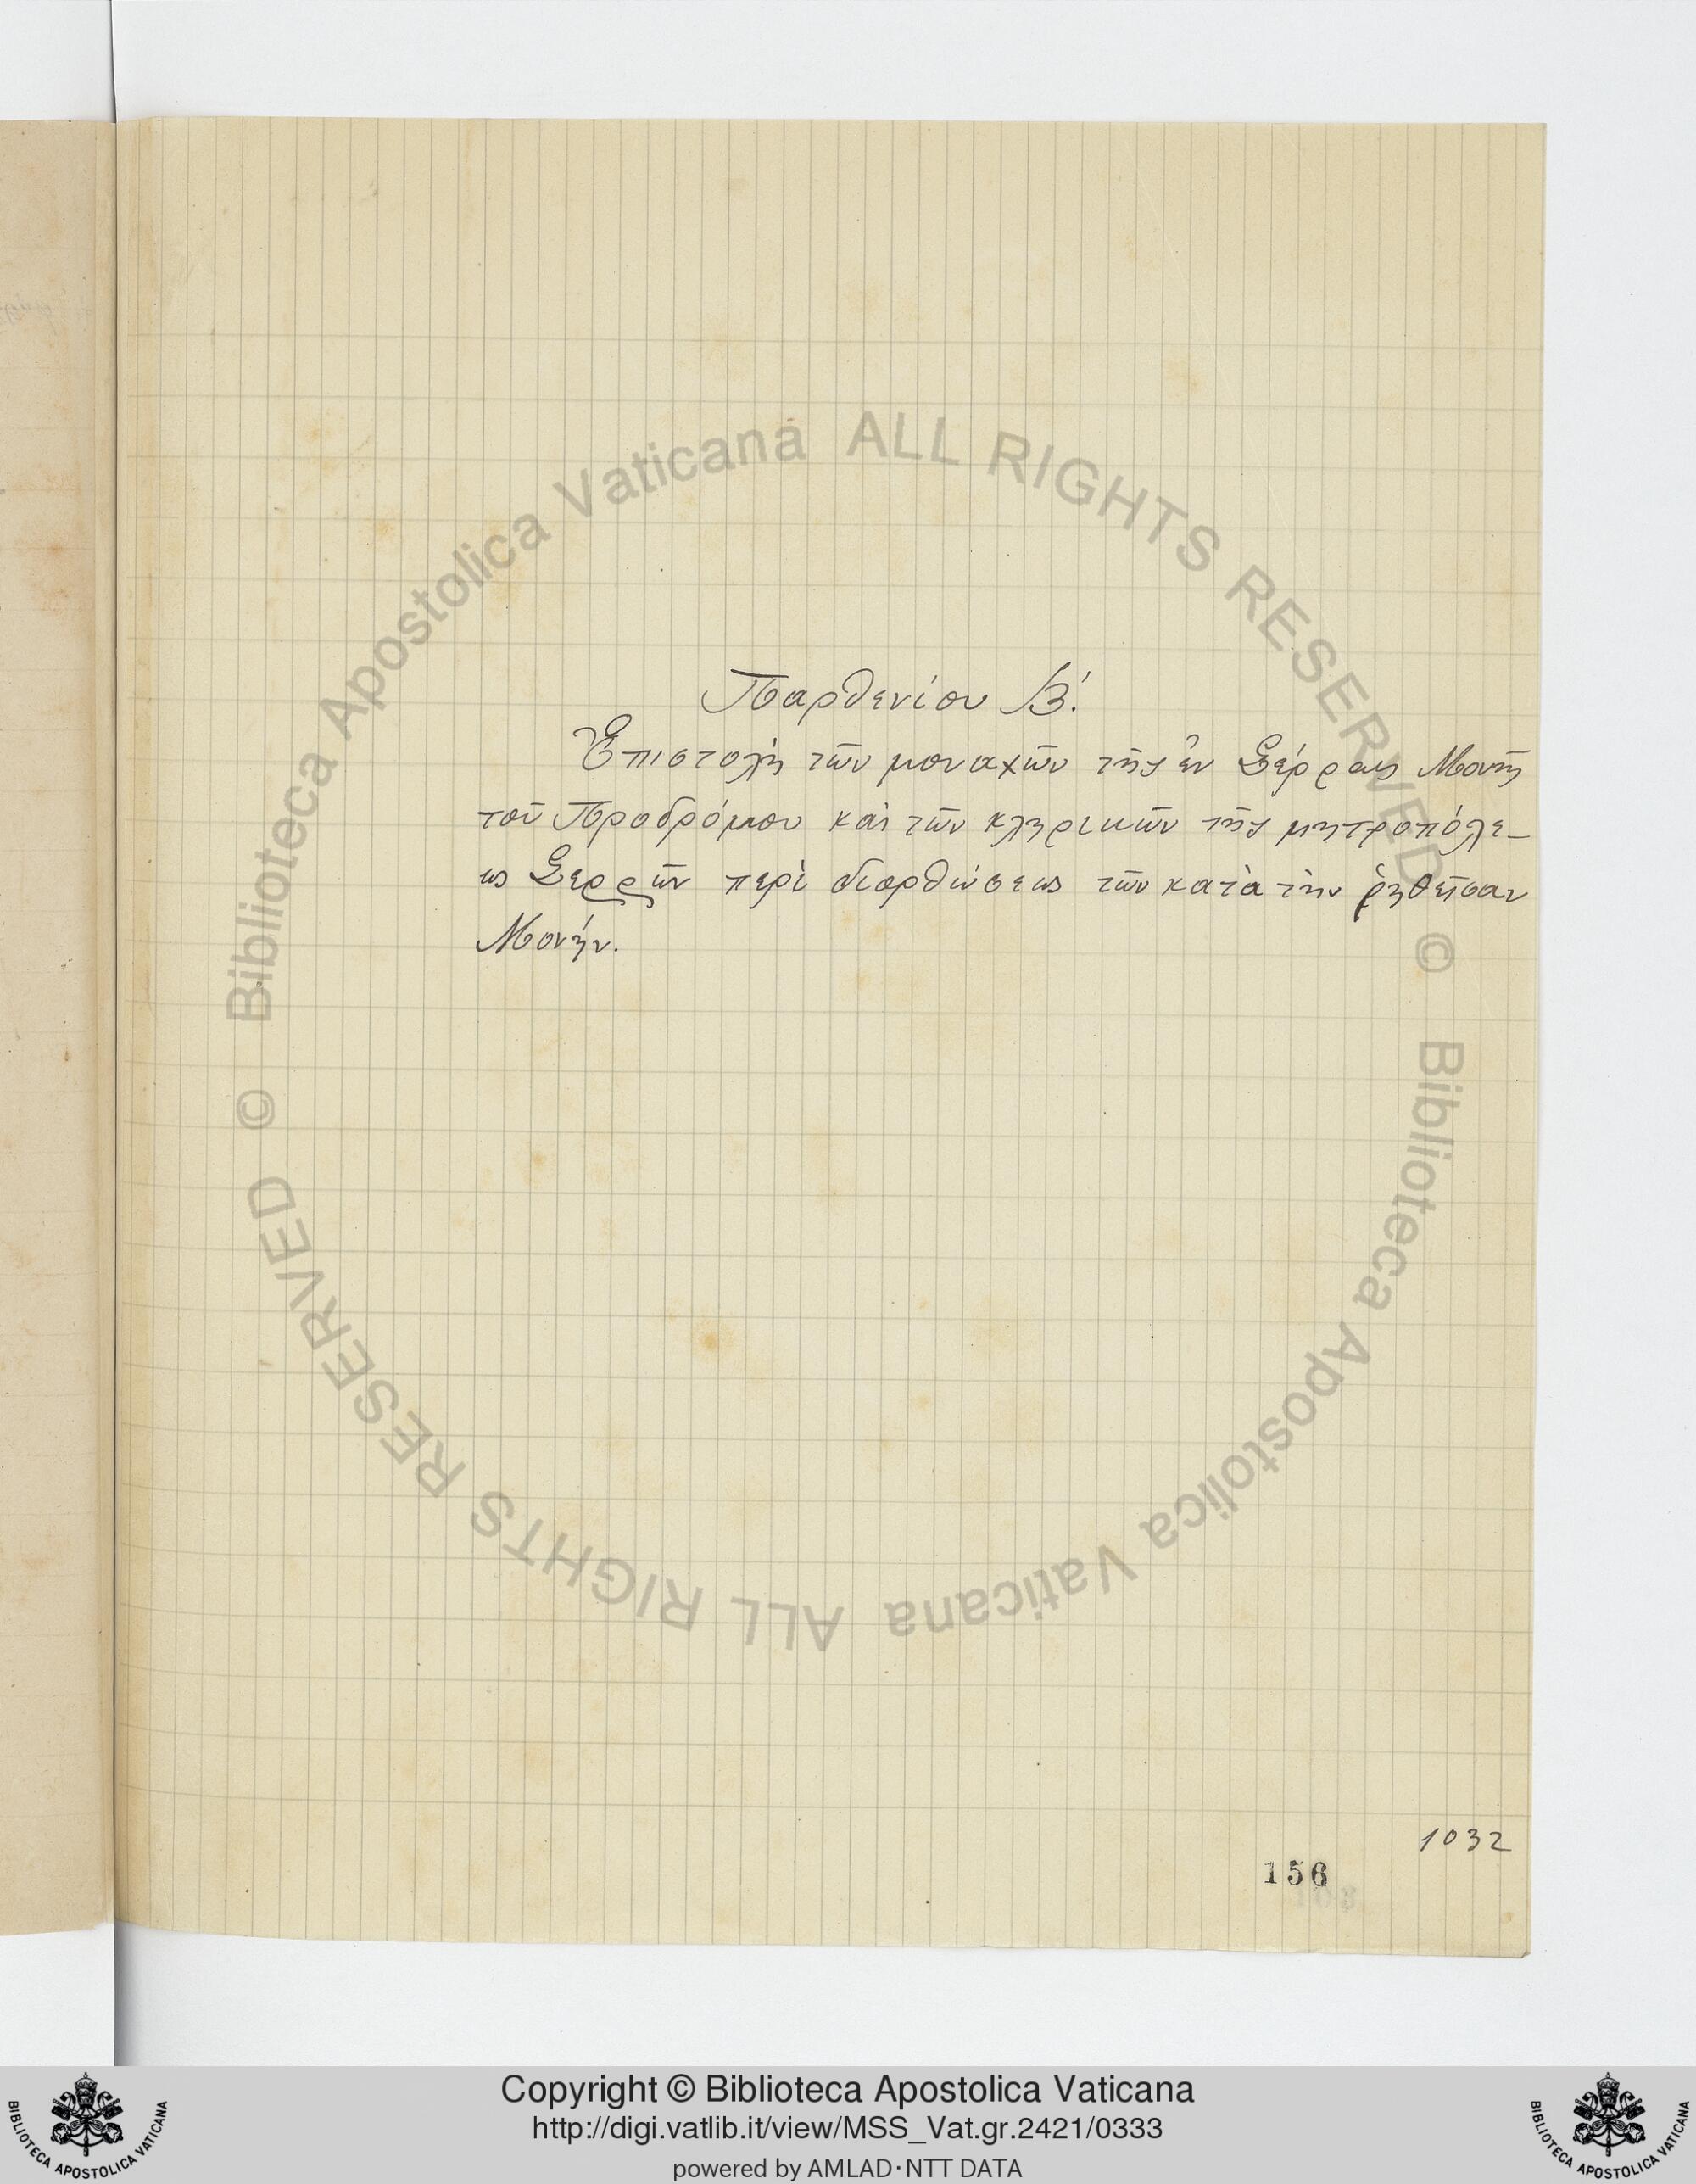 Παρθενίου Β΄.
Ἐπιστολὴ τῶν μοναχῶν τῆς ἐν Σέρραις Μονῆς
τοῦ Προδρόμου καὶ τῶν κληρικῶν τῆς μητροπόλε-
ως Σερρῶν περὶ διορθώσεως τῶν κατὰ τὴν ῥηθεῖσαν
Μονήν.
1032
156
© Biblioteca Apostolica Vaticana ALL RIGHTS RESERVED
© Biblioteca Apostolica Vaticana ALL RIGHTS RESERVED
Copyright © Biblioteca Apostolica Vaticana
http://digi.vatlib.it/view/MSS_Vat.gr.2421/0333
powered by AMLAD·NTT DATA
BIBLIOTECA APOSTOLICA VATICANA
BIBLIOTECA APOSTOLICA VATICANA